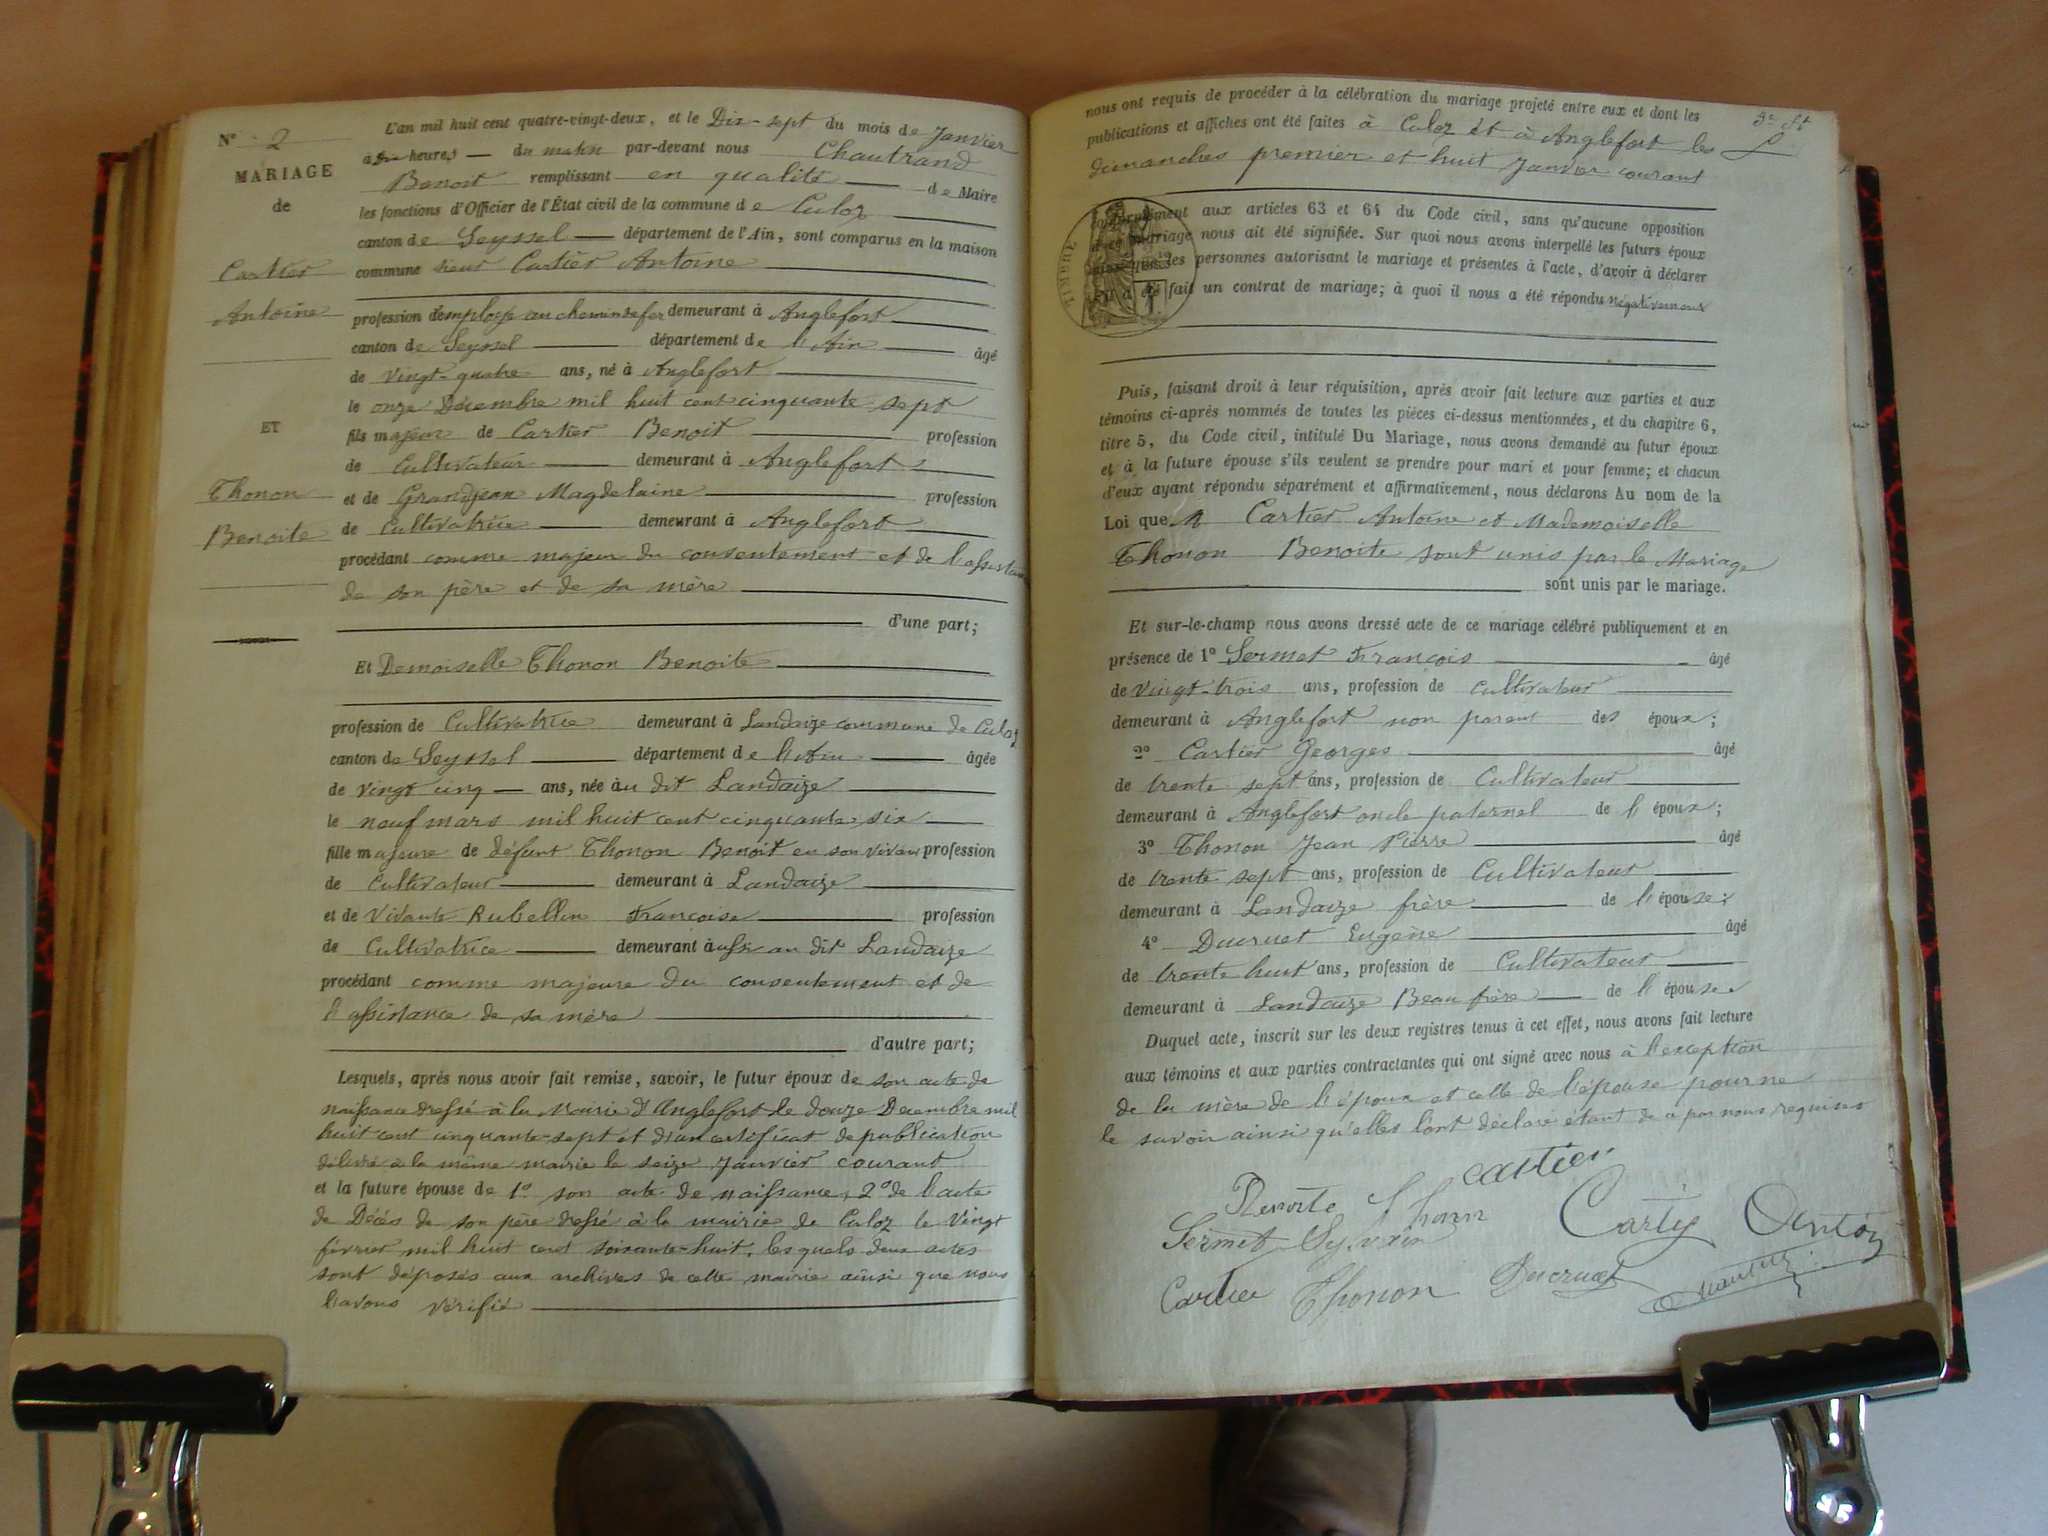 N° 2
MARIAGE
de
Cartier
Antoine
ET
Thonon
Benoite
L'an mil huit cent quatre-vingt-deux, et le Dix-sept du mois de Janvier
à dix heures du matin par-devant nous Chautrand
Benoit remplissant en qualité de Maire
les fonctions d'Officier de l'État civil de la commune de Culoz
canton de Seyssel département de l'Ain, sont comparus en la maison
commune sieur Cartier Antoine
profession d'employé au chemin de fer demeurant à Anglefort
canton de Seyssel département de l'Ain âgé
de vingt-quatre ans, né à Anglefort
le onze Décembre mil huit cent cinquante sept
fils majeur de Cartier Benoit profession
de Cultivateur demeurant à Anglefort
et de Grandjean Magdelaine profession
de Cultivatrice demeurant à Anglefort
procédant comme majeur du consentement et de l'assistance
de son père et de sa mère
d'une part;
Et Demoiselle Thonon Benoite
profession de Cultivatrice demeurant à Landaize commune de Culoz
canton de Seyssel département de l'Ain âgée
de vingt cinq ans, née au dit Landaize
le neuf mars mil huit cent cinquante six
fille majeure de défunt Thonon Benoit en son vivant profession
de Cultivateur demeurant à Landaize
et de Vivante Rubellin Françoise profession
de Cultivatrice demeurant aussi au dit Landaize
procédant comme majeure du consentement et de
l'assistance de sa mère
d'autre part;
Lesquels, après nous avoir fait remise, savoir, le futur époux de son acte de
naissance dressé à la Mairie d'Anglefort le douze Decembre mil
huit cent cinquante-sept et d'un certificat de publication
délivré à la même mairie le seize Janvier courant
et la future épouse de 1° son acte de naissance, 2° de l'acte
de Décès de son père dressé à la mairie de Culoz le Vingt
février mil huit cent soixante-huit, lesquels deux actes
sont déposés aux archives de cette mairie ainsi que nous
l'avons vérifié
nous ont requis de procéder à la célébration du mariage projeté entre eux et dont les
publications et affiches ont été faites à Culoz et à Anglefort les
dimanches premier et huit Janvier courant
TIMBRE
conformément aux articles 63 et 64 du Code civil, sans qu'aucune opposition
à ce mariage nous ait été signifiée. Sur quoi nous avons interpellé les futurs époux
ainsi que les personnes autorisant le mariage et présentes à l'acte, d'avoir à déclarer
s'il a été fait un contrat de mariage; à quoi il nous a été répondu négativement
Puis, faisant droit à leur réquisition, après avoir fait lecture aux parties et aux
témoins ci-après nommés de toutes les pièces ci-dessus mentionnées, et du chapitre 6,
titre 5, du Code civil, intitulé Du Mariage, nous avons demandé au futur époux
et à la future épouse s'ils veulent se prendre pour mari et pour femme; et chacun
d'eux ayant répondu séparément et affirmativement, nous déclarons Au nom de la
Loi que M Cartier Antoine et Mademoiselle
Thonon Benoite sont unis par le Mariage
sont unis par le mariage.
Et sur-le-champ nous avons dressé acte de ce mariage célébré publiquement et en
présence de 1° Sermet François âgé
de Vingt-trois ans, profession de Cultivateur
demeurant à Anglefort non parent des époux;
2° Cartier Georges âgé
de trente sept ans, profession de Cultivateur
demeurant à Anglefort oncle paternel de l'époux;
3° Thonon Jean Pierre âgé
de trente sept ans, profession de Cultivateur
demeurant à Landaize frère de l'épouse;
4° Ducruet Eugène âgé
de trente huit ans, profession de Cultivateur
demeurant à Landaize Beau frère de l'épouse.
Duquel acte, inscrit sur les deux registres tenus à cet effet, nous avons fait lecture
aux témoins et aux parties contractantes qui ont signé avec nous à l'exception
de la mère de l'époux et celle de l'épouse pour ne
le savoir ainsi qu'elles l'ont déclaré étant de ce par nous requises
Benoite Thonon cartier
Sermet Sylvain Cartier Antoin
Cartier Thonon Ducruet